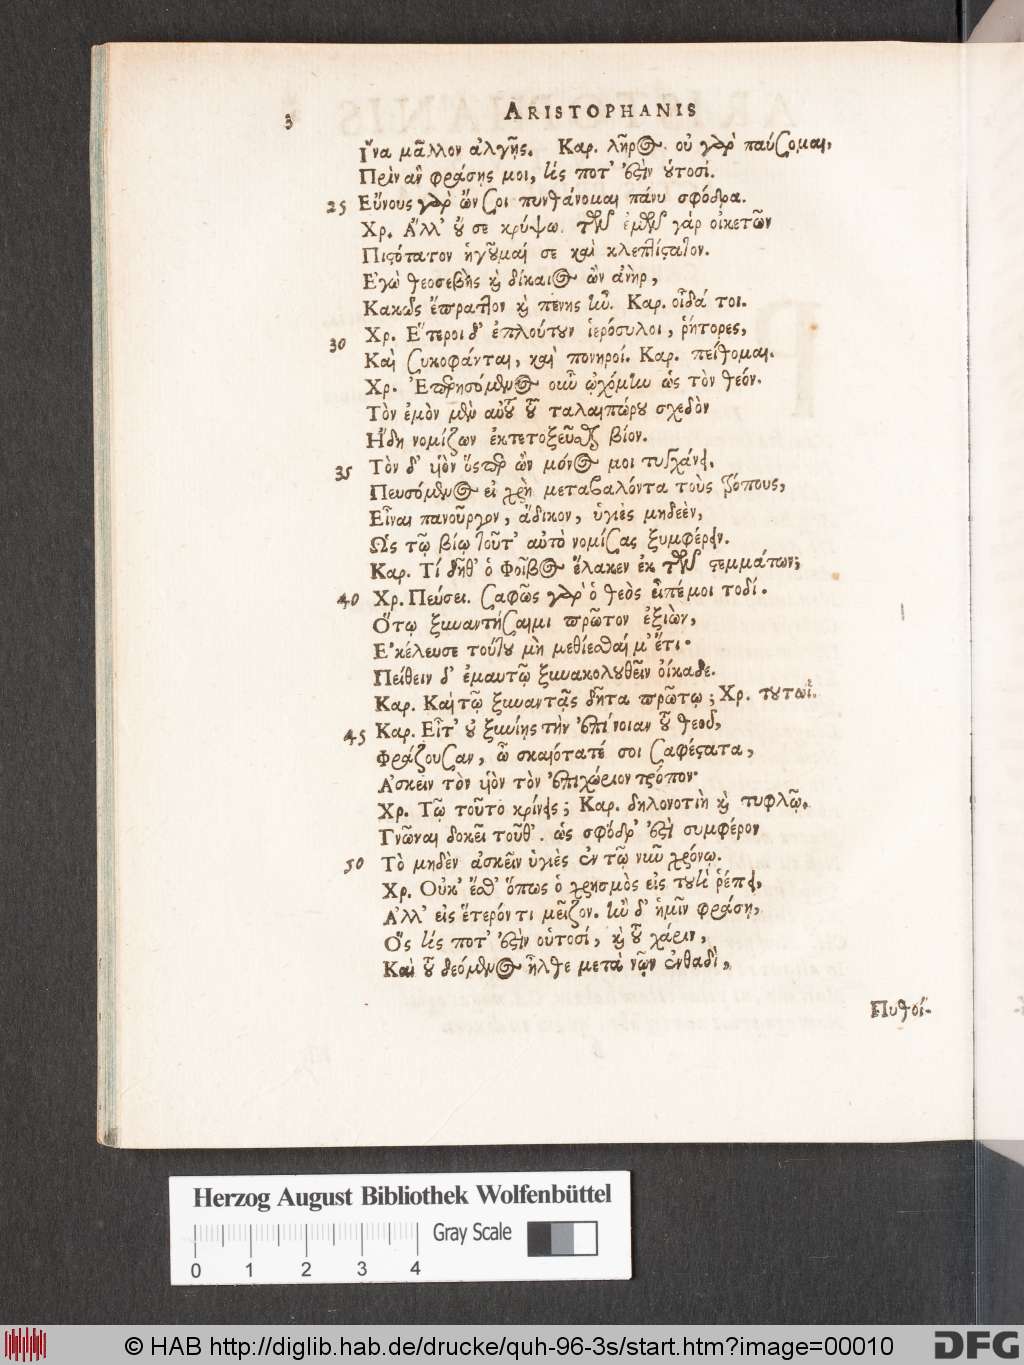 3 ARISTOPHANIS
Ἵνα μᾶλλον ἀλγῇς. Καρ. λῆρος. οὐ γὰρ παύσομαι,
Πρὶν ἂν φράσῃς μοι, τίς ποτ' ἐστὶν οὑτοσί.
25 Εὔνους γὰρ ὤν σοι πυνθάνομαι πάνυ σφόδρα.
Χρ. Ἀλλ' οὔ σε κρύψω. τῶν ἐμῶν γάρ οἰκετῶν
Πιστότατον ἡγοῦμαί σε καὶ κλεπτίστατον.
Ἐγὼ θεοσεβὴς καὶ δίκαιος ὢν ἀνὴρ,
Κακῶς ἔπραττον καὶ πένης ἦν. Καρ. οἶδά τοι.
30 Χρ. Ἕτεροι δ' ἐπλούτουν ἱερόσυλοι, ῥήτορες,
Καὶ συκοφάνται, καὶ πονηροί. Καρ. πείθομαι.
Χρ. Ἐπερησόμενος οὖν ᾠχόμην ὡς τὸν θεόν.
Τὸν ἐμὸν μὲν αὐτοῦ τοῦ ταλαιπώρου σχεδὸν
Ἤδη νομίζων ἐκτετοξεῦσθαι βίον.
35 Τὸν δ' υἱὸν ὅσπερ ὢν μόνος μοι τυγχάνει,
Πευσόμενος εἰ χρὴ μεταβαλόντα τοὺς τρόπους,
Εἶναι πανοῦργον, ἄδικον, ὑγιὲς μηδεὲν,
Ὡς τῷ βίῳ τοῦτ' αὐτὸ νομίσας ξυμφέρειν.
Καρ. Τί δῆθ' ὁ Φοῖβος ἔλακεν ἐκ τῶν στεμμάτων;
40 Χρ. Πεύσει. σαφῶς γὰρ ὁ θεὸς εἶπέ μοι τοδί.
Ὅτῳ ξυναντήσαιμι πρῶτον ἐξιὼν,
Ἐκέλευσε τούτου μὴ μεθίεσθαί μ' ἔτι·
Πείθειν δ' ἐμαυτῷ ξυνακολουθεῖν οἴκαδε.
Καρ. Καὶ τῷ ξυναντᾷς δῆτα πρώτῳ; Χρ. τουτωί.
45 Καρ. Εἶτ' οὐ ξυνίης τὴν ἐπίνοιαν τοῦ θεοῦ,
Φράζουσαν, ὦ σκαιότατέ σοι σαφέστατα,
Ἀσκεῖν τὸν υἱὸν τὸν ἐπιχώριον τρόπον·
Χρ. Τῷ τοῦτο κρίνεις; Καρ. δηλονοτιὴ καὶ τυφλῷ.
Γνῶναι δοκεῖ τοῦθ'. ὡς σφόδρ' ἐστὶ συμφέρον
50 Τὸ μηδὲν ἀσκεῖν ὑγιὲς ἐν τῷ νῦν χρόνῳ.
Χρ. Οὐκ' ἔσθ' ὅπως ὁ χρησμὸς εἰς τουτὶ ῥέπει,
Ἀλλ' εἰς ἕτερόν τι μεῖζον. ἢν δ' ἡμῖν φράσῃ,
Ὅς τίς ποτ' ἐστὶν οὑτοσί, καὶ τοῦ χάριν,
Καὶ τοῦ δεόμενος ἦλθε μετὰ νῷν ἐνθαδὶ,
Πυθοί-
Herzog August Bibliothek Wolfenbüttel
Gray Scale
0 1 2 3 4
© HAB http://diglib.hab.de/drucke/quh-96-3s/start.htm?image=00010
DFG